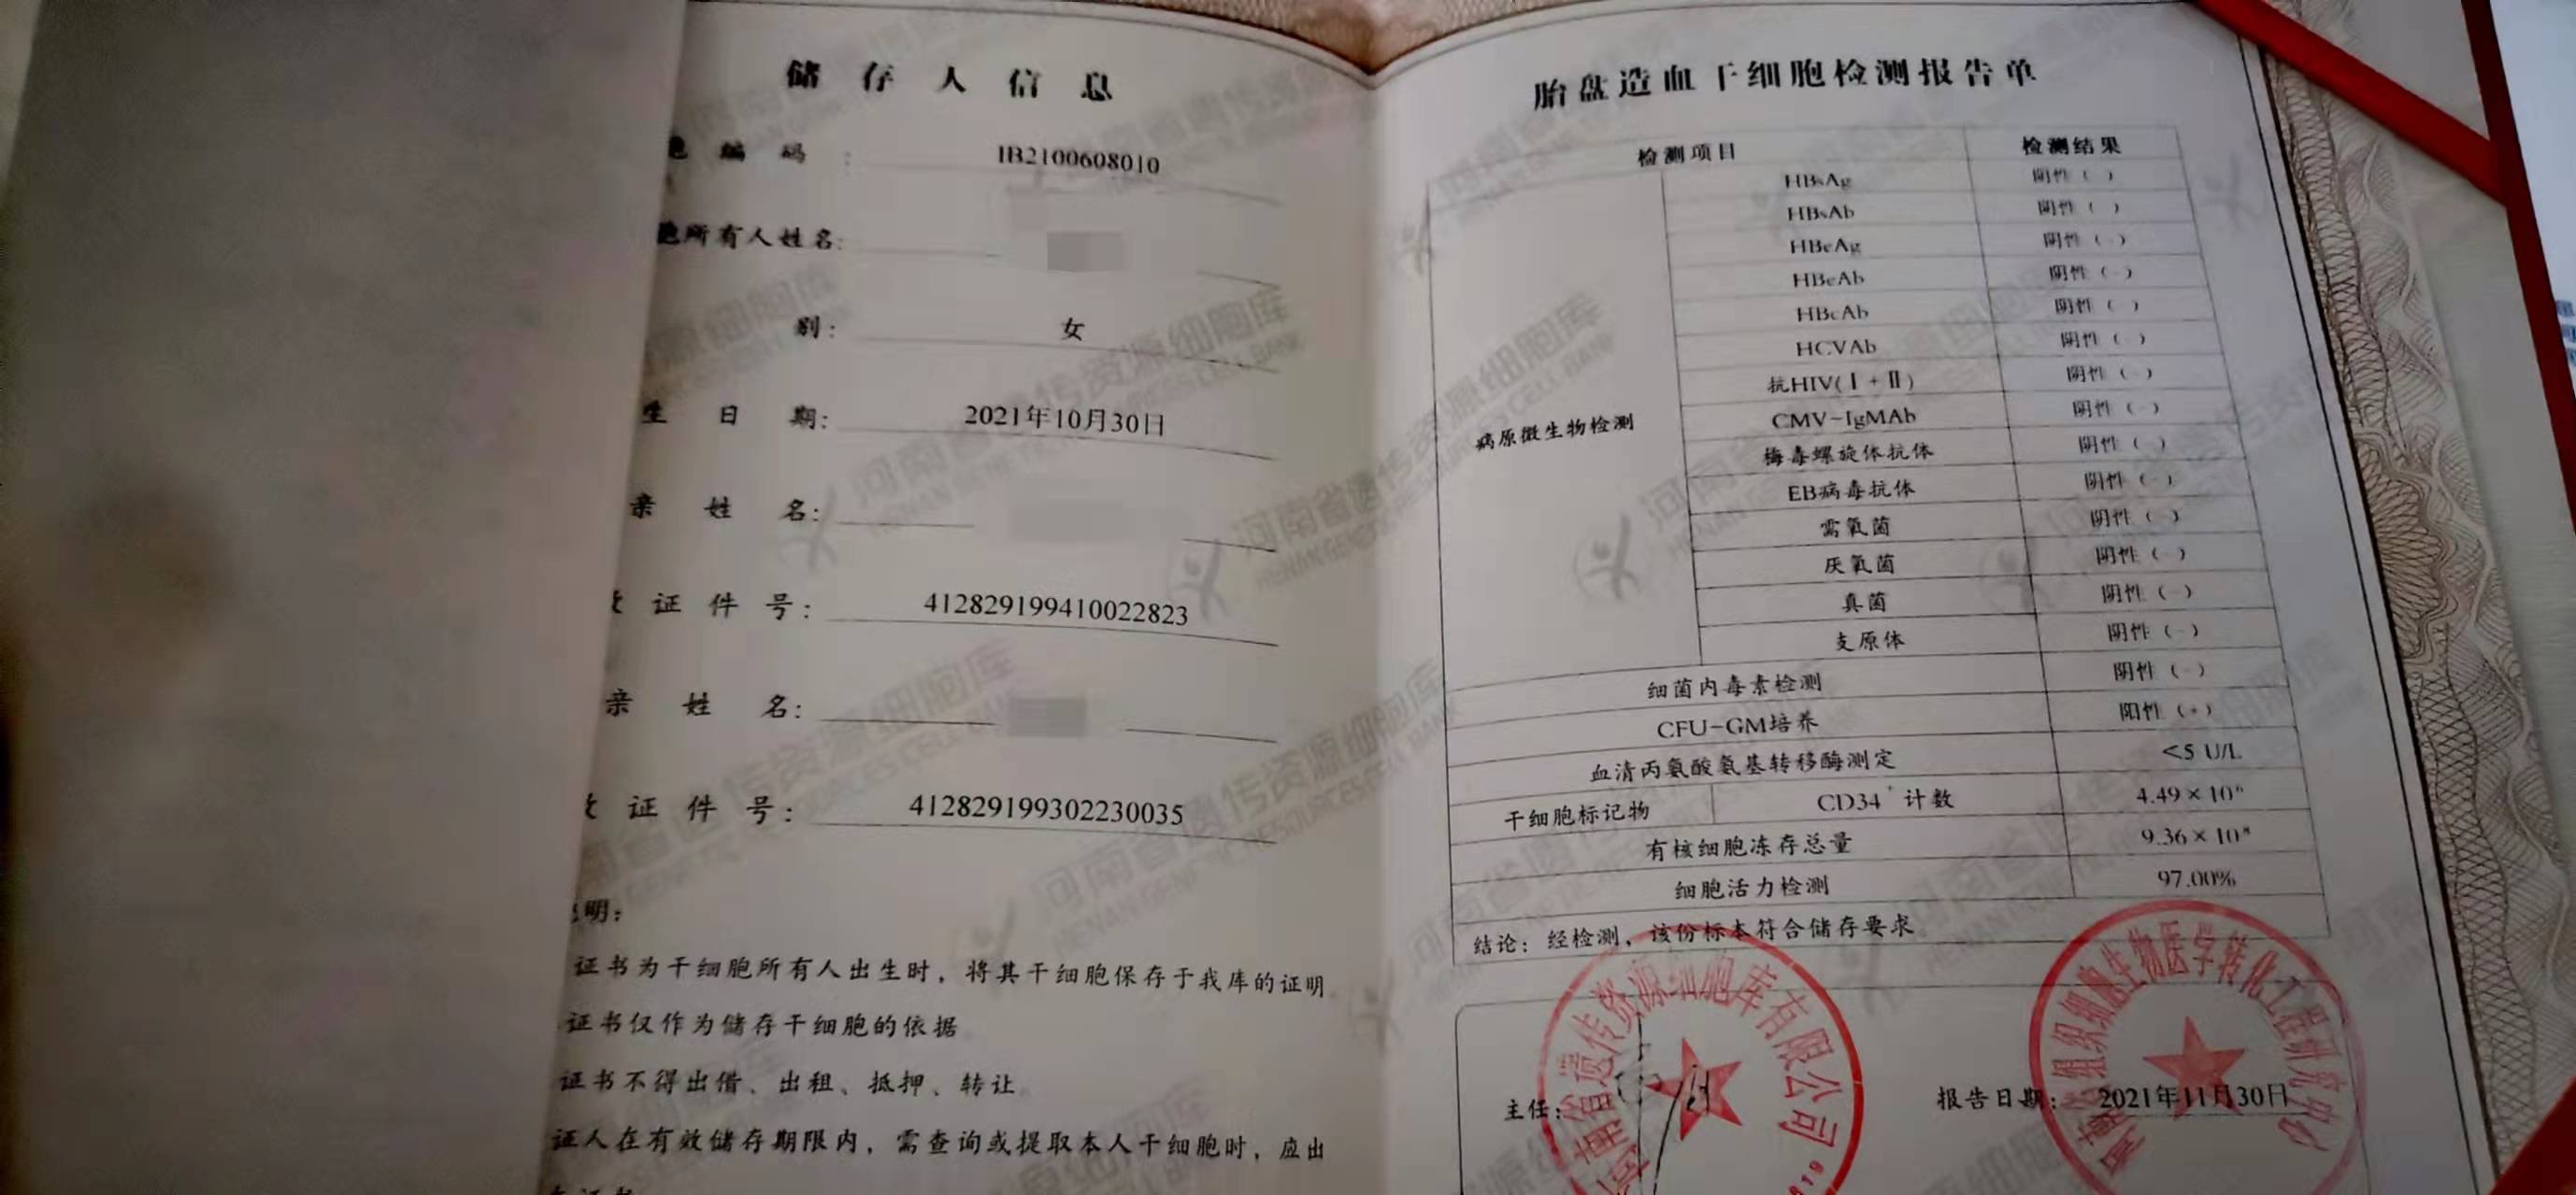 储存人信息
编码: IB2100608010
所有人姓名:
别: 女
生日期: 2021年10月30日
亲姓名:
证件号: 412829199410022823
亲姓名:
证件号: 412829199302230035
明:
证书为干细胞所有人出生时，将其干细胞保存于我库的证明
证书仅作为储存干细胞的依据
证书不得出借、出租、抵押、转让
证人在有效储存期限内，需查询或提取本人干细胞时，应出
胎盘造血干细胞检测报告单
检测项目 检测结果
病原微生物检测
HBsAg 阴性（ ）
HBsAb 阴性（ ）
HBeAg 阴性（-）
HBeAb 阴性（-）
HBcAb 阴性（ ）
HCVAb 阴性（ ）
抗HIV(Ⅰ+Ⅱ) 阴性（-）
CMV-IgMAb 阴性（-）
梅毒螺旋体抗体 阴性（-）
EB病毒抗体 阴性（-）
需氧菌 阴性（-）
厌氧菌 阴性（-）
真菌 阴性（-）
支原体 阴性（-）
细菌内毒素检测 阴性（-）
CFU-GM培养 阳性（+）
血清丙氨酸氨基转移酶测定 <5 U/L
干细胞标记物 CD34⁺计数 4.49×10⁶
有核细胞冻存总量 9.36×10⁸
细胞活力检测 97.00%
结论：经检测，该份标本符合储存要求
主任:
报告日期: 2021年11月30日
河南省遗传资源细胞库有限公司
组织细胞生物医学转化工程研究中心
河南省遗传资源细胞库
HENAN GENE RESOURCES CELL BANK